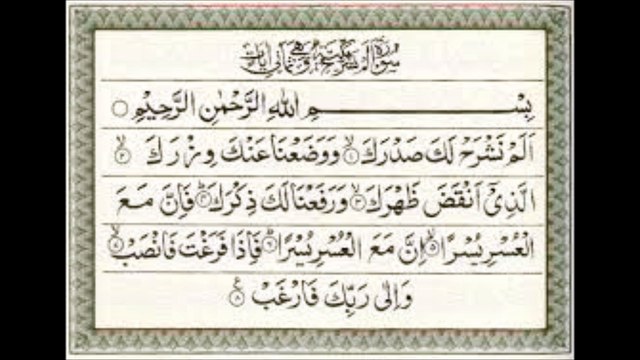 سورة الم نشرح مكية وهي ثماني آيات
بِسْمِ اللهِ الرَّحْمٰنِ الرَّحِيْمِ
اَلَمْ نَشْرَحْ لَكَ صَدْرَكَ ۙ﴿١﴾ وَوَضَعْنَا عَنْكَ وِزْرَكَ ۙ﴿٢﴾
الَّذِیْٓ اَنْقَضَ ظَهْرَكَ ۙ﴿٣﴾ وَرَفَعْنَا لَكَ ذِكْرَكَ ؕ﴿٤﴾ فَاِنَّ مَعَ
الْعُسْرِ يُسْرًا ۙ﴿٥﴾ اِنَّ مَعَ الْعُسْرِ يُسْرًا ؕ﴿٦﴾ فَاِذَا فَرَغْتَ فَانْصَبْ ۙ﴿٧﴾
وَاِلٰى رَبِّكَ فَارْغَبْ ﴿٨﴾ ع